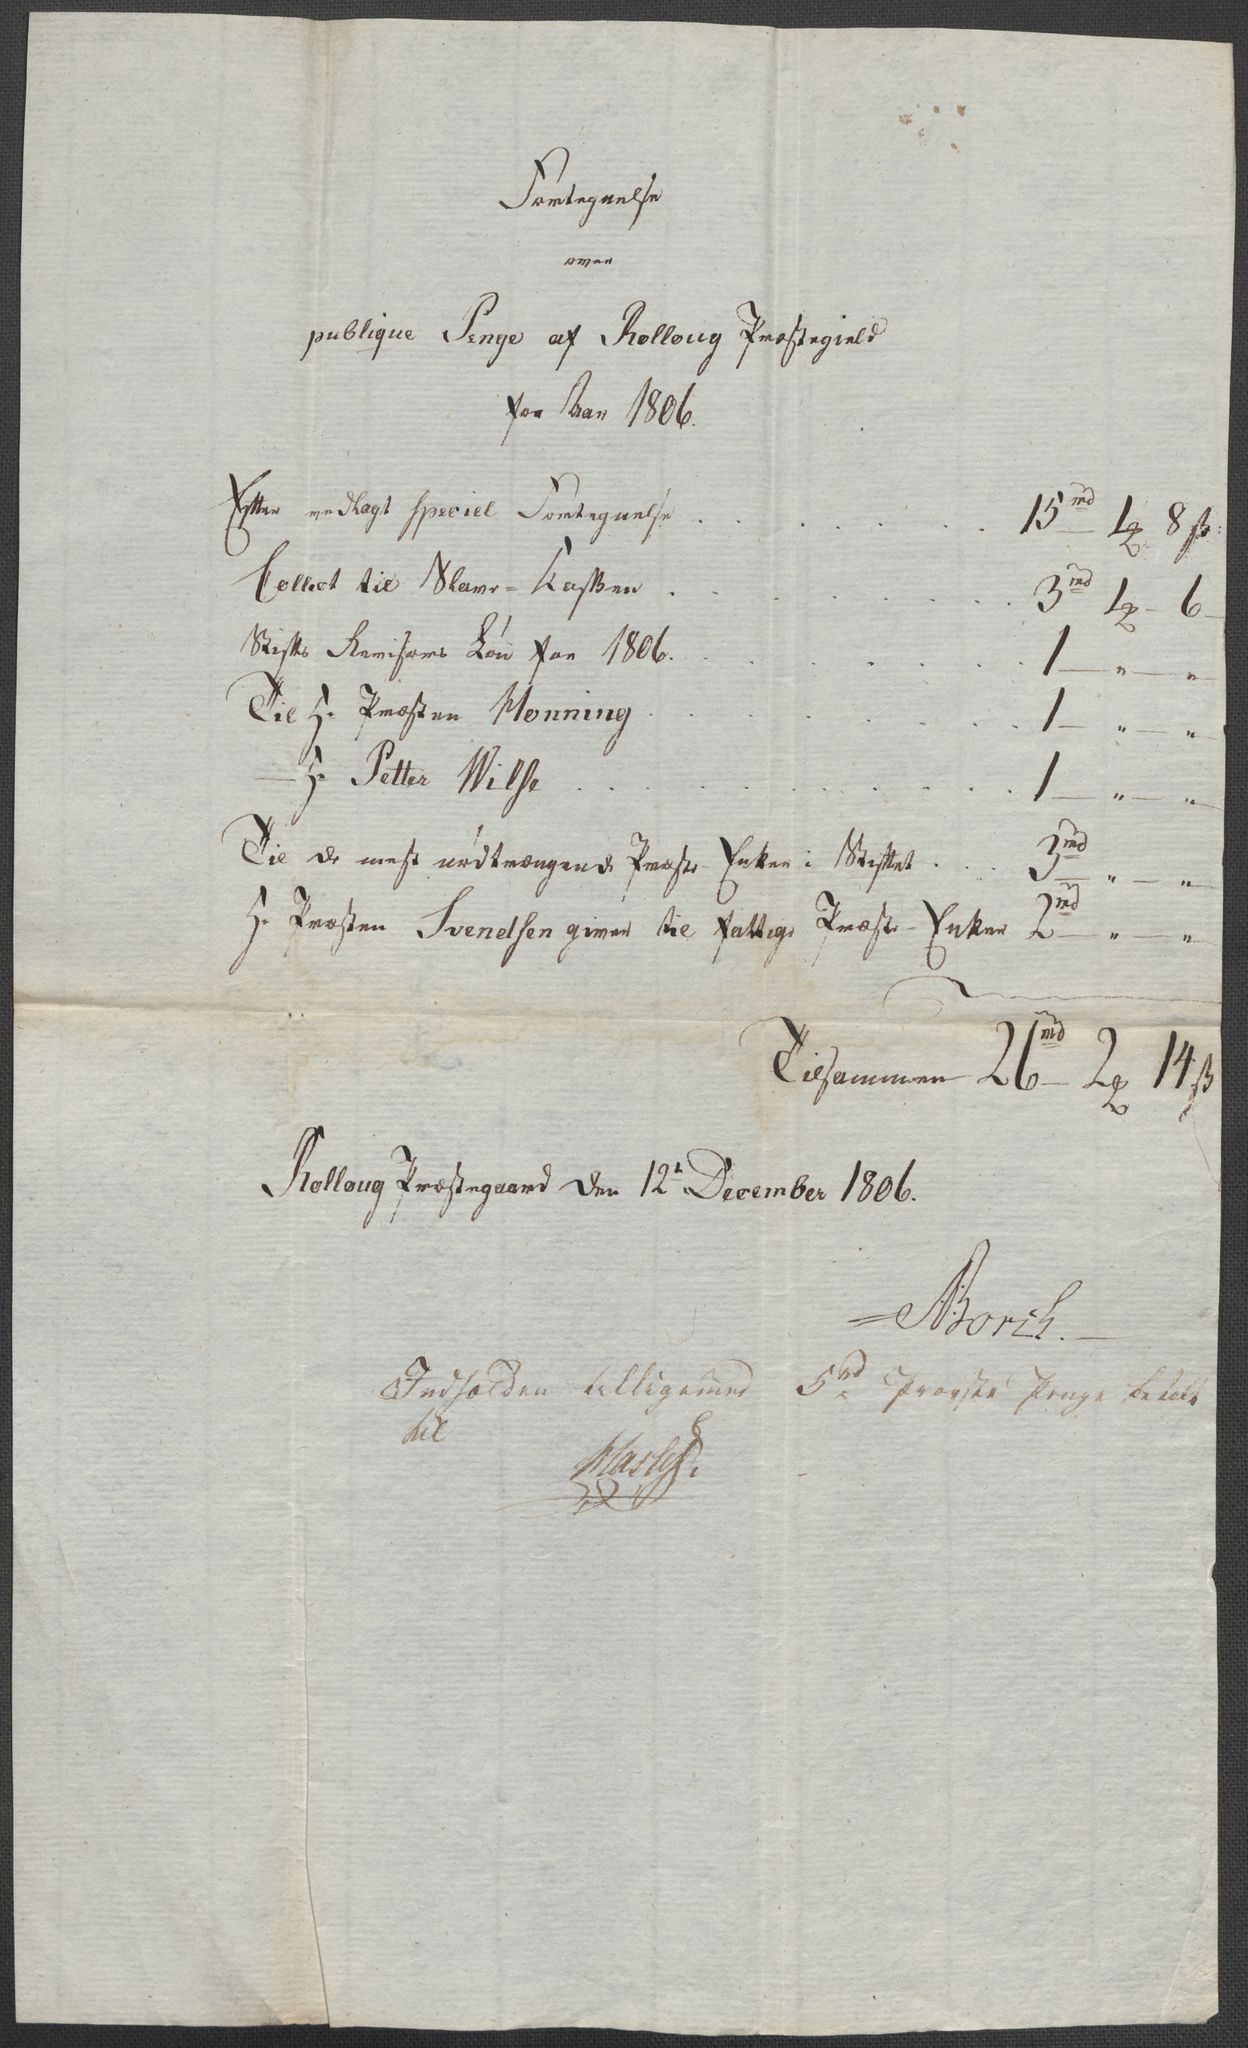 Fortegnelse
over
publique Penge af Rolloug Præstegield
for Aar 1806.
Efter vedlagt speciel Fortegnelse . . . . . . . . 15 rd 1 ℔ 8 ß:
Collect til Slave-Kassen . . . . . . . . 3 rd 1 ℔ - 6 -
Stifts Revisors Løn for 1806. . . . . . . . 1 — " — "
Til Hr Præsten Monning . . . . . . . 1 — " — "
— Hr Petter Wilse . . . . . . . . . . 1 — " — "
Til de mest nødtrængende Præste-Enker i Stiftet . . . . 3 rd " — "
Hr Præsten Svendsen giver til fattige Præste-Enker 2 rd " — "
Tilsammen 26 rd 2 ℔ 14 ß
Rolloug Præstegaard den 12t December 1806.
Borch.
Indholden tilligemed 5 rd Provste Penge betalt
til